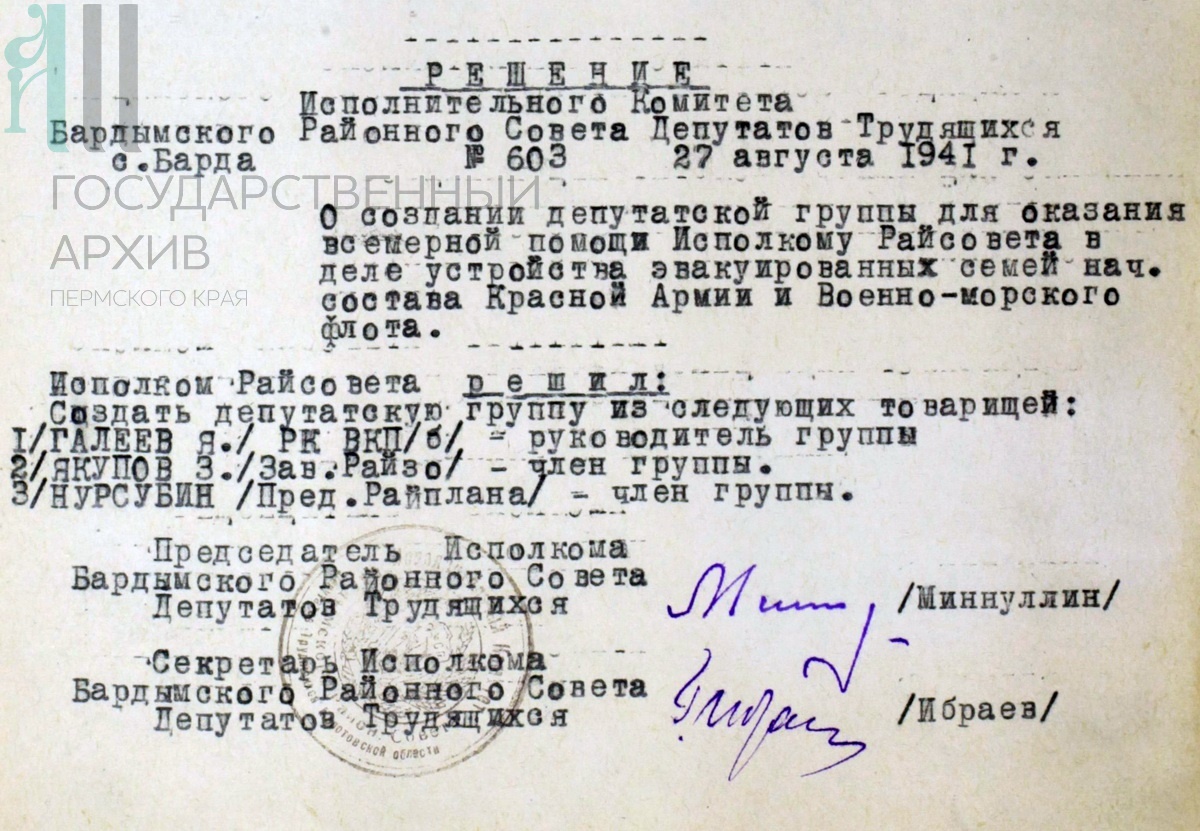 Р Е Ш Е Н И Е
Исполнительного Комитета
Бардымского Районного Совета Депутатов Трудящихся
с.Барда № 603 27 августа 1941 г.
ГОСУДАРСТВЕННЫЙ
АРХИВ
ПЕРМСКОГО КРАЯ
О создании депутатской группы для оказания
всемерной помощи Исполкому Райсовета в
деле устройства эвакуированных семей нач.
состава Красной Армии и Военно-морского
флота.
Исполком Райсовета р е ш и л:
Создать депутатскую группу из следующих товарищей:
1/ГАЛЕЕВ Я./ РК ВКП/б/ - руководитель группы
2/ЯКУПОВ З./Зав.Райзо/ - член группы.
3/НУРСУБИН /Пред.Райплана/ - член группы.
Председатель Исполкома
Бардымского Районного Совета
Депутатов Трудящихся /Миннуллин/
Секретарь Исполкома
Бардымского Районного Совета
Депутатов Трудящихся /Ибраев/
области